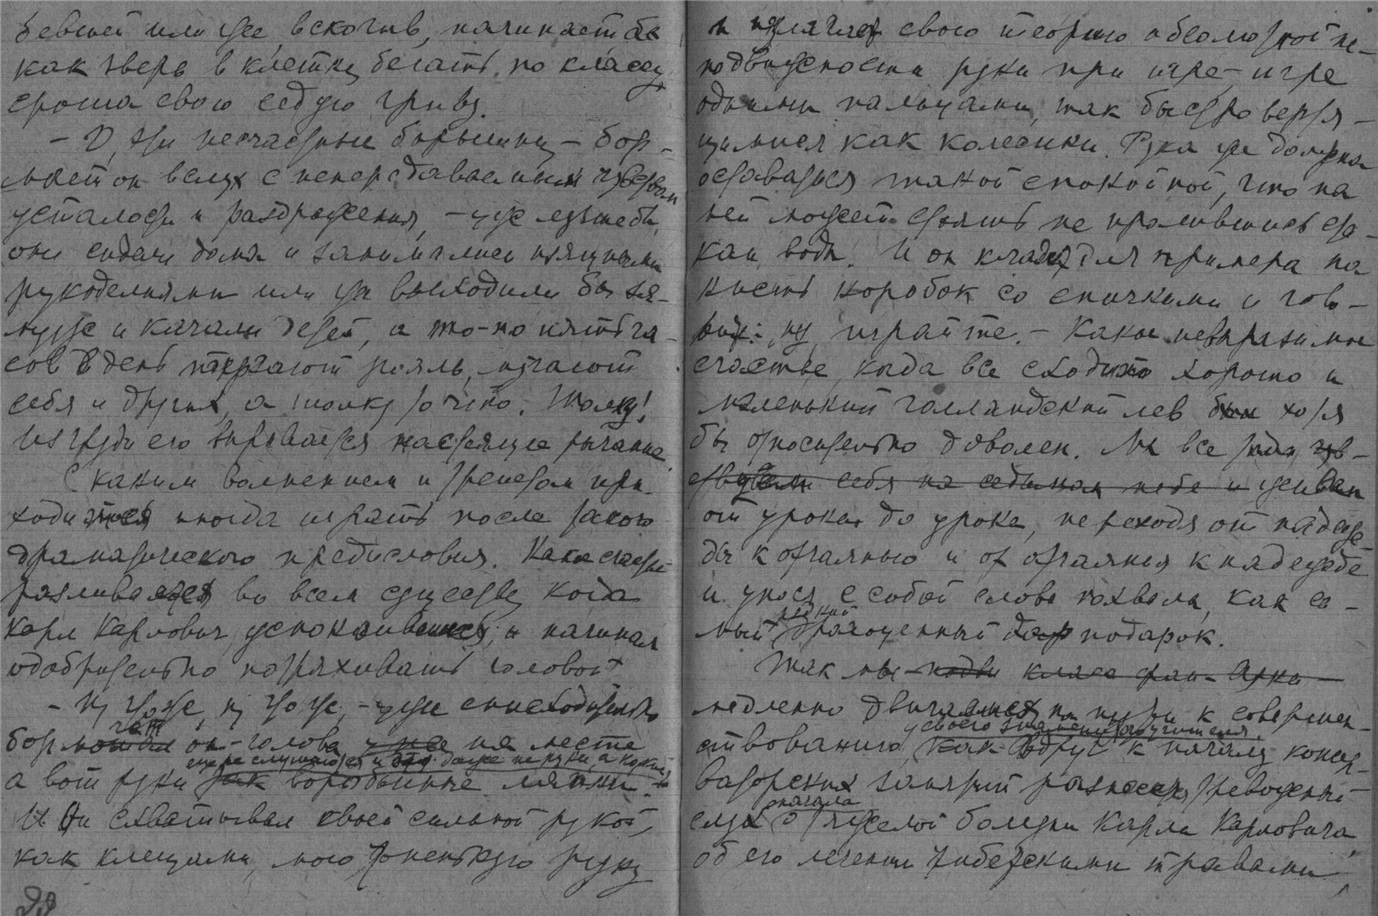 бевшей или же вскочив, начинает
как зверь в клетке бегать по классу
ероша свою седую гриву.
– О, эти несчастные барышни, – бор-
мочет он вслух с непередаваемым чувством
усталости и раздражения, – уже лучше бы
они сидели дома и занимались изящными
рукоделиями или уж выходили бы за-
муж и качали детей, а то по пять ча-
сов в день терзают рояль, мучают
себя и других, а толку то что. Толку!
Из груди его вырывается настоящее рычание.
С каким волнением и трепетом при-
ходится иногда играть после такого
драматического предисловия. Какое счастье
разливается во всем существе, когда
Карл Карлович, успокаиваясь, начинал
одобрительно потряхивать головой
– Ну уже, ну уже, – уже снисходительно
бормочет он – голова на месте
а вот руки как воробьиные лапки
И он схватывал своей сильной рукой,
как клещами, мою тоненькую руку
и излагает свою теорию абсолютной не-
подвижности руки при игре – игре
одними пальцами, так быстро вертя-
щимися как колесики. Рука же должна
оставаться такой спокойной, что на
ней может стоять не пролившись ста-
кан воды. И он кладет для примера на
кисть коробок со спичками и гово-
рит: ну, играйте. – Какое невыразимое
счастье, когда все сходит хорошо и
маленький голландский лев хотя
бы относительно доволен. Мы все тогда чув-
ствуем себя на седьмом небе и живем
от урока до урока, переходя от надеж-
ды к отчаянью и от отчаянья к надежде
и унося с собой слово похвалы, как са-
мый редкий драгоценный дар подарок.
Так мы класс фан-Арка
медленно двигались на пути к совершен-
ствованию своего знаменитого учителя,
как вдруг к началу консер-
ваторских занятий разнесся тревожный
слух сначала о тяжелой болезни Карла Карловича,
об его лечении тибетскими травами,